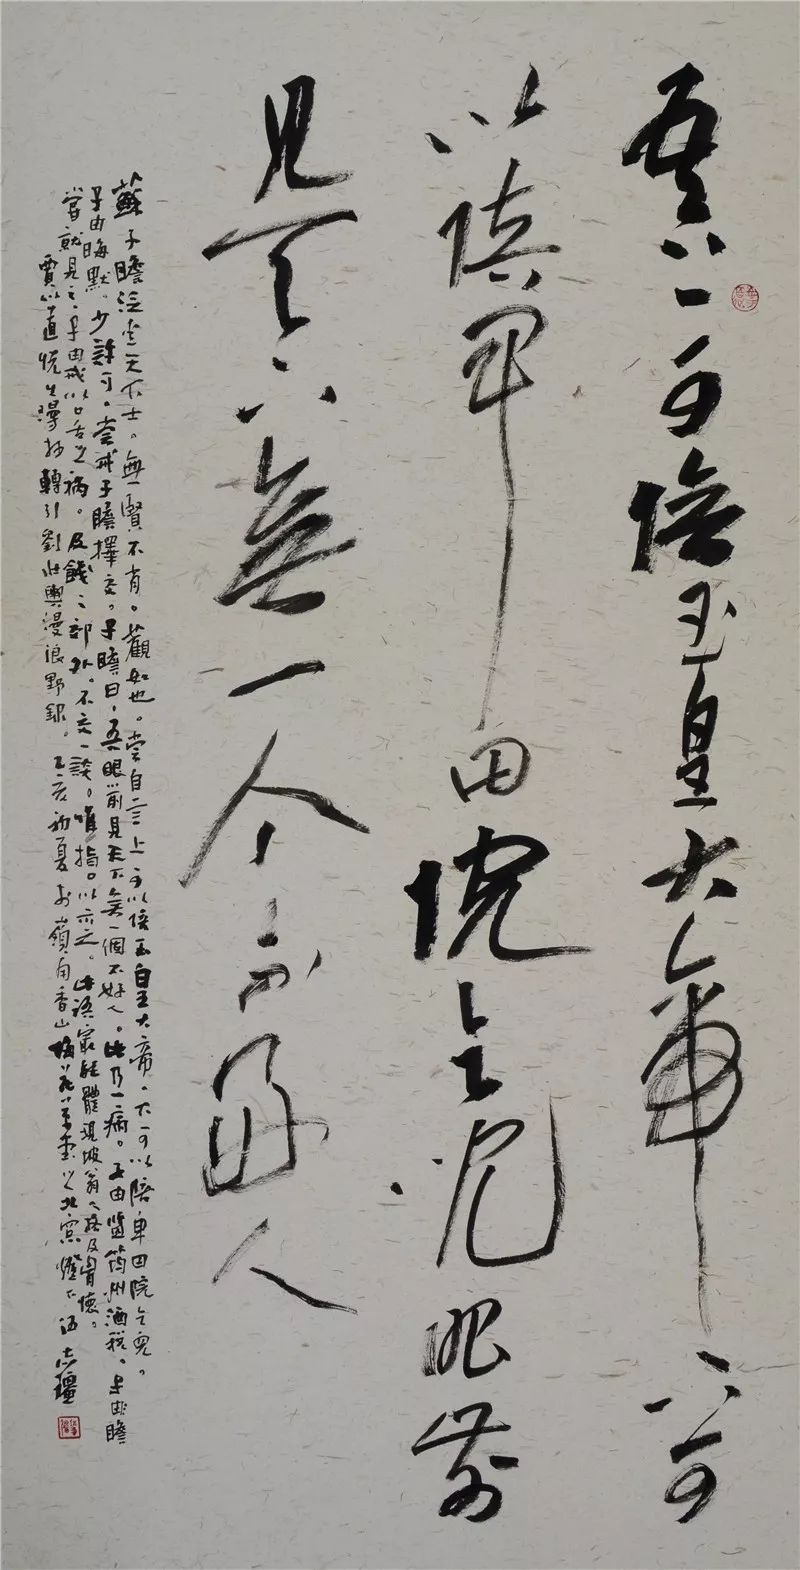 吾上可陪玉皇大帝下可
以陪卑田院乞兒眼前
見天下無一个不好人
蘇子瞻泛愛天下士。無賢不肖。觀如也。嘗自言上可以陪玉皇大帝。下可以陪卑田院乞兒。
子由晦默。少許可。嘗戒子瞻擇交。子瞻曰，吾眼前見天下無一個不好人。此乃一病。子由監筠州酒稅。子瞻
嘗就見之，子由戒以口舌之禍。及餞之郊外。不交一談。唯指口以示之。此語最能體現坡翁人格及胸懷。
賈似道悅生隨抄轉引劉壯輿漫浪野錄。己亥初夏於嶺南香山梅花草堂之北窗燈下